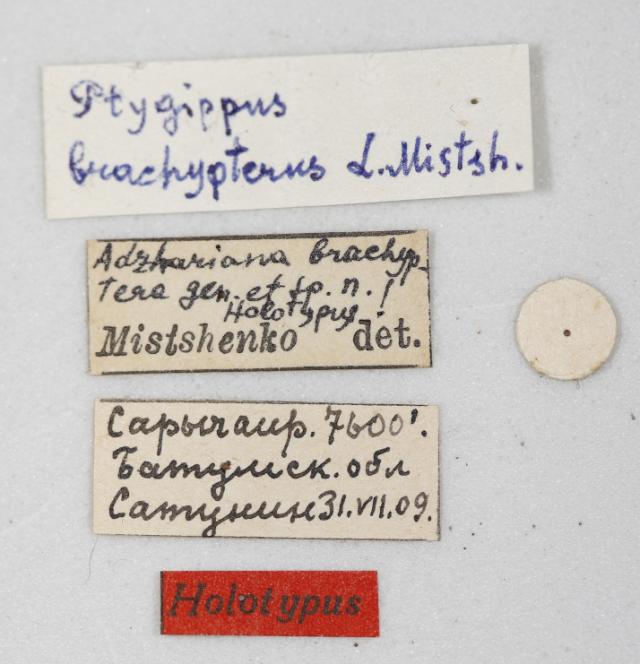 Ptygippus
brachypterus L. Mistsh.
Adzhariana brachyp-
tera gen. et sp. n.!
Holotypus
Mistshenko det.
Сарычаир. 7600'.
Батумск. обл
Сатунин 31.VII.09.
Holotypus